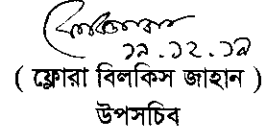 ১৯.১২.১৯
( ফ্লোরা বিলকিস জাহান )
উপসচিব